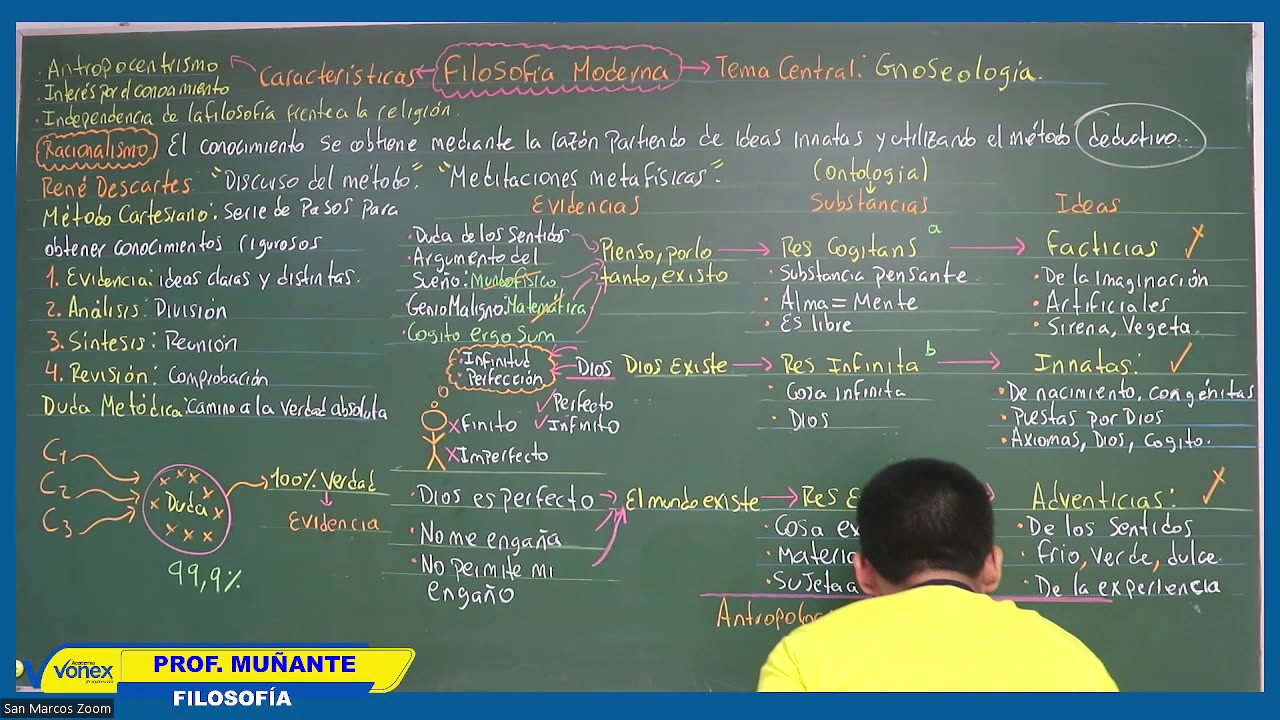 · Antropocentrismo
· Interés por el conocimiento
· Independencia de la filosofía frente a la religión.
Características
Filosofía Moderna
Tema Central: Gnoseología.
Racionalismo
El conocimiento se obtiene mediante la razón partiendo de ideas innatas y utilizando el método deductivo...
René Descartes "Discurso del método". "Meditaciones metafísicas".
Método Cartesiano: Serie de pasos para
obtener conocimientos rigurosos
1. Evidencia: ideas claras y distintas.
2. Análisis: División
3. Síntesis: Reunión
4. Revisión: Comprobación
Duda Metódica: Camino a la verdad absoluta
C1
C2
C3
Duda
99,9%
100% Verdad
Evidencia
Evidencias
· Duda de los Sentidos
· Argumento del
Sueño: Mundo físico
Genio Maligno: Matemática
· Cogito ergo Sum
Pienso, por lo
tanto, existo
· Infinitud
· Perfección
Dios
Dios Existe
Perfecto
Infinito
x Finito
x Imperfecto
· Dios es perfecto
· No me engaña
· No permite mi
engaño
El mundo existe
(Ontología)
Substancias
Res Cogitans a
· Substancia pensante
· Alma = Mente
· Es libre
Res Infinita b
· Cosa infinita
· Dios
Res E
· Cosa ex
· Materia
· Sujeta a
Ideas
Facticias x
· De la imaginación
· Artificiales
· Sirena, Vegeta.
Innatas:
· De nacimiento, congénitas
· Puestas por Dios
· Axiomas, Dios, Cogito.
Adventicias: x
· De los Sentidos
· Frío, verde, dulce.
· De la experiencia
Antropolog
Academia
Vonex
PROF. MUÑANTE
FILOSOFÍA
San Marcos Zoom